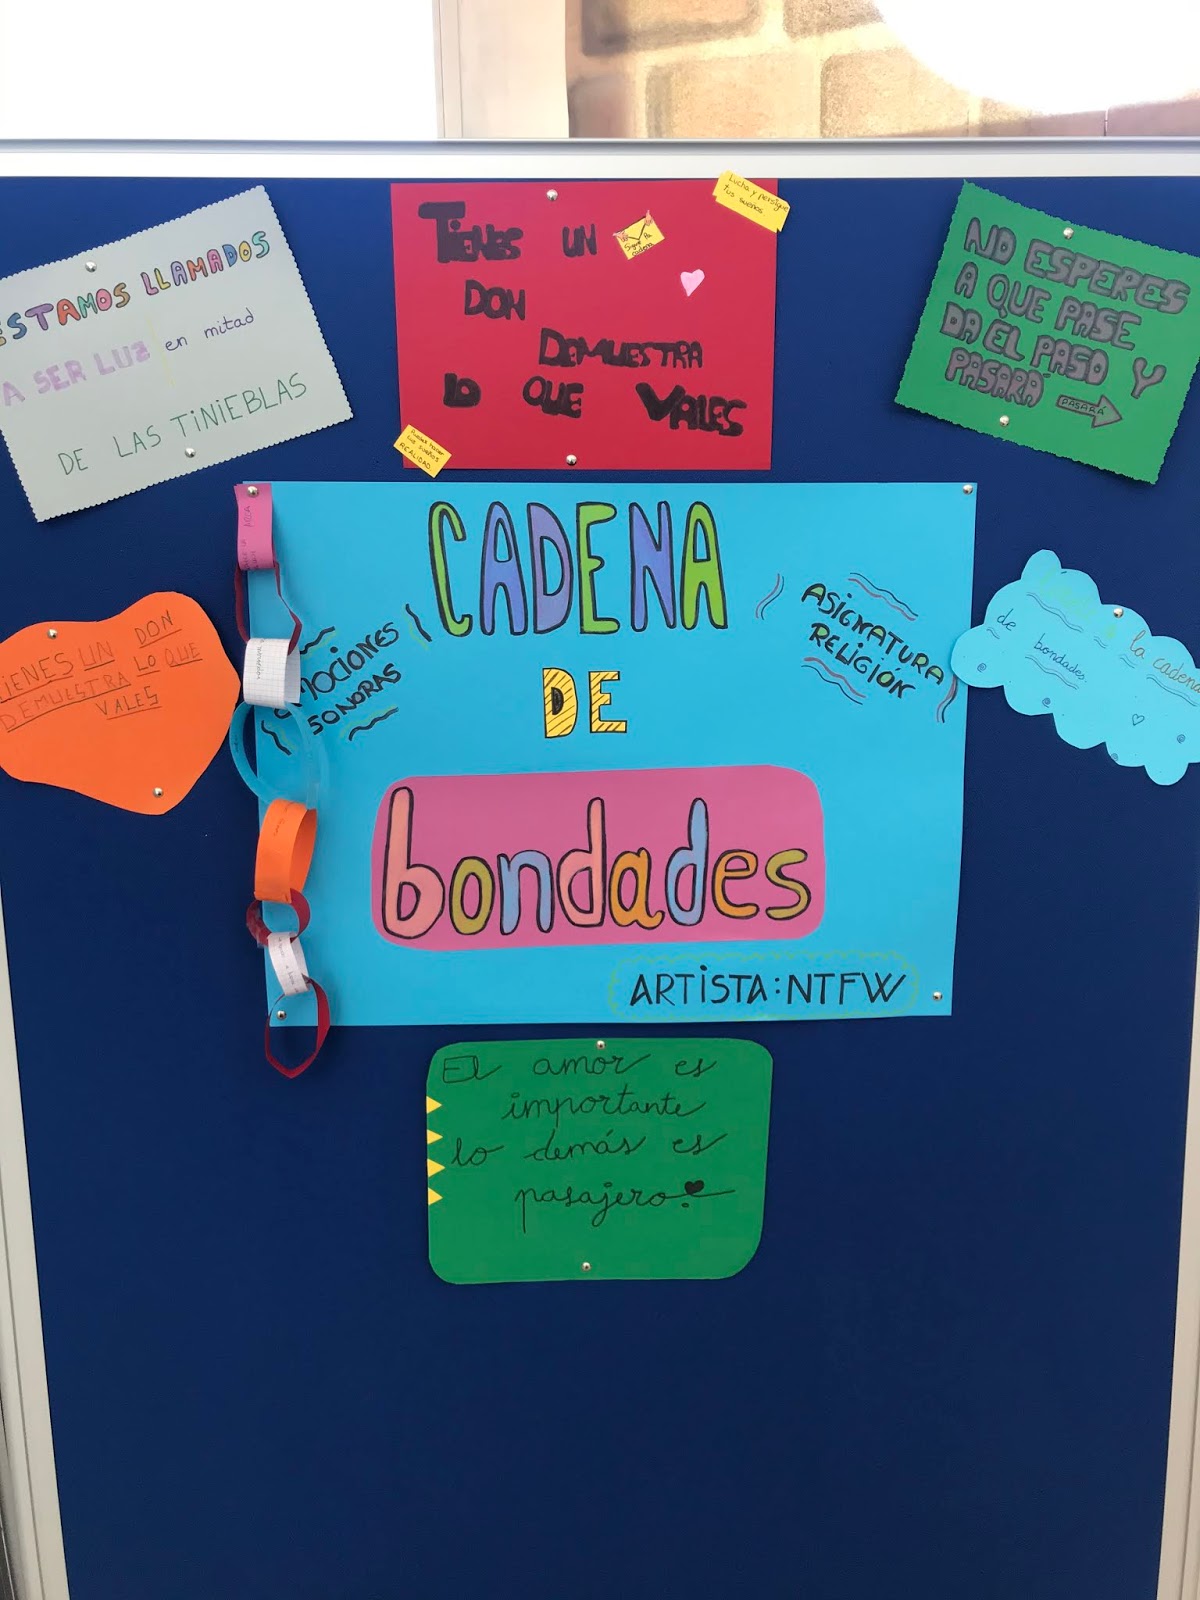 ESTAMOS LLAMADOS
A SER LUZ en mitad
DE LAS TiNiEBLAS
TiENES UN
DON
DEMUESTRA
LO QUE VALES
Sigue la
cadena
Lucha y persigue
tus sueños
Puedes hacer
tus sueños
REALIDAD
NO ESPERES
A QUE PASE
DA EL PASO Y
PASARÁ
PASARÁ
TIENES UN DON
DEMUESTRA LO QUE
VALES
CADENA
DE
bondades
EMOCIONES
SONORAS
ASIGNATURA
RELIGIÓN
ARTiSTA: NTFW
la cadena
de bondades
El amor es
importante
lo demás es
pasajero